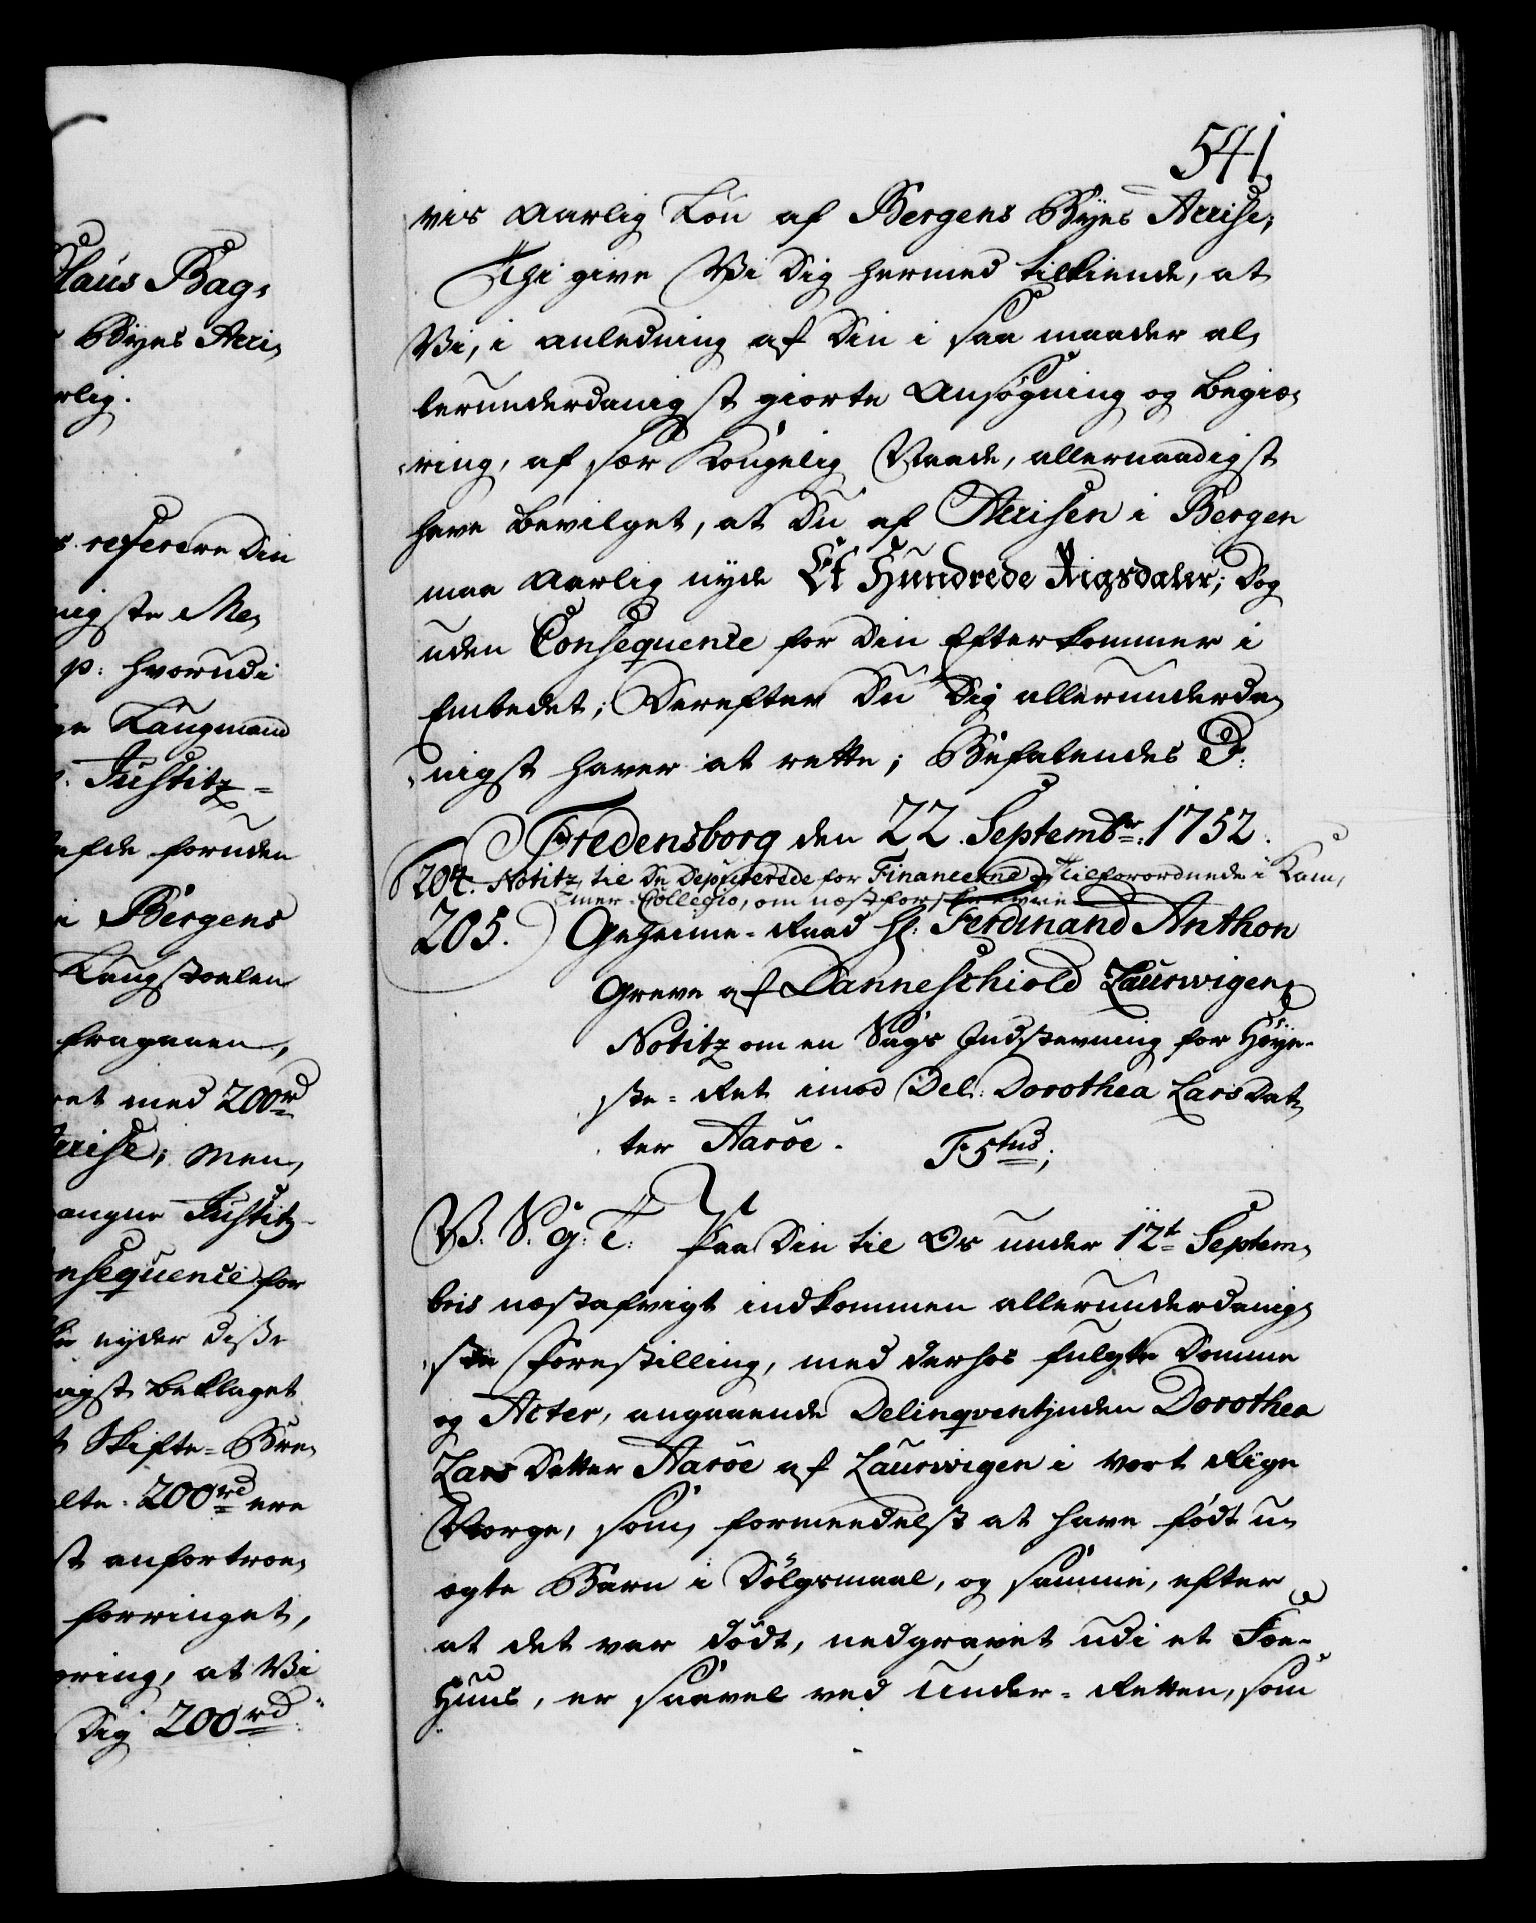 541.
vis Aarlig Løn af Bergens Byes Accise;
Thi give Vi Dig hermed tilkiende, at
Vi, i anledning af Din i saa maader al,
lerunderdanigst giorte Ansøgning og begiæ,
ring, af sær Kongelig Naade, allernaadigst
have bevilget, at Du af Accisen i Bergen
maa Aarlig nyde Et Hundrede Rigsdaler; Dog
uden Consequence for Din Efterkommer i
Embedet; Derefter Du Dig allerunderda,
nigst haver at rette; Befalendes P:
Fredensborg den 22. Septembr: 1752.
204. Notitz, til De Deputerede for Financerne og Tilforordnede i Kam,
mer-Collegio, om næstforskrevne
205. Geheime-Raad Hr: Ferdinand Anthon
Greve af Danneschiold Laurwigen,
Notitz om en Sags Indstevning for Høye-
ste-Ret imod Del: Dorothea LarsDat,
ter Aarøe. F5tus;
V. S. G. T. Paa Din til Os under 12t Septem,
bris næstafvigt indkommen allerunderdanig,
ste Forestilling, med derhos fulgte Domme
og Acter, angaaende Delinqventinden Dorothea
Lars Datter Aarøe af Laurwigen i vort Rige
Norge, som, formeedelst at have født u,
ægte Barn i Dølgsmaal, og samme, efter
at det var dødt, nedgravet udi et Foe-
Huus, er saavel ved Under-Retten, som
Claus Bag,
Byes Acci,
rlig.
referere Din
nigste Me,
p: hvorudi
Laugmand
Justitz-
foruden
i Bergens
Laugstoelen
fragaaen,
et med 200rd
Accise; men,
angne Justitz-
nsequence for
nyder disse
nigst beklaget
Skifte-Bre,
200rd ere
st anfortroe,
forringet,
æring, at Vi
Dig 200rd: